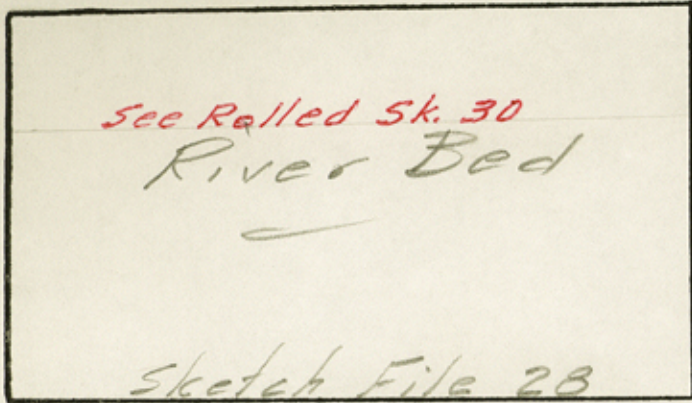 See Rolled Sk. 30
River Bed
Sketch File 28